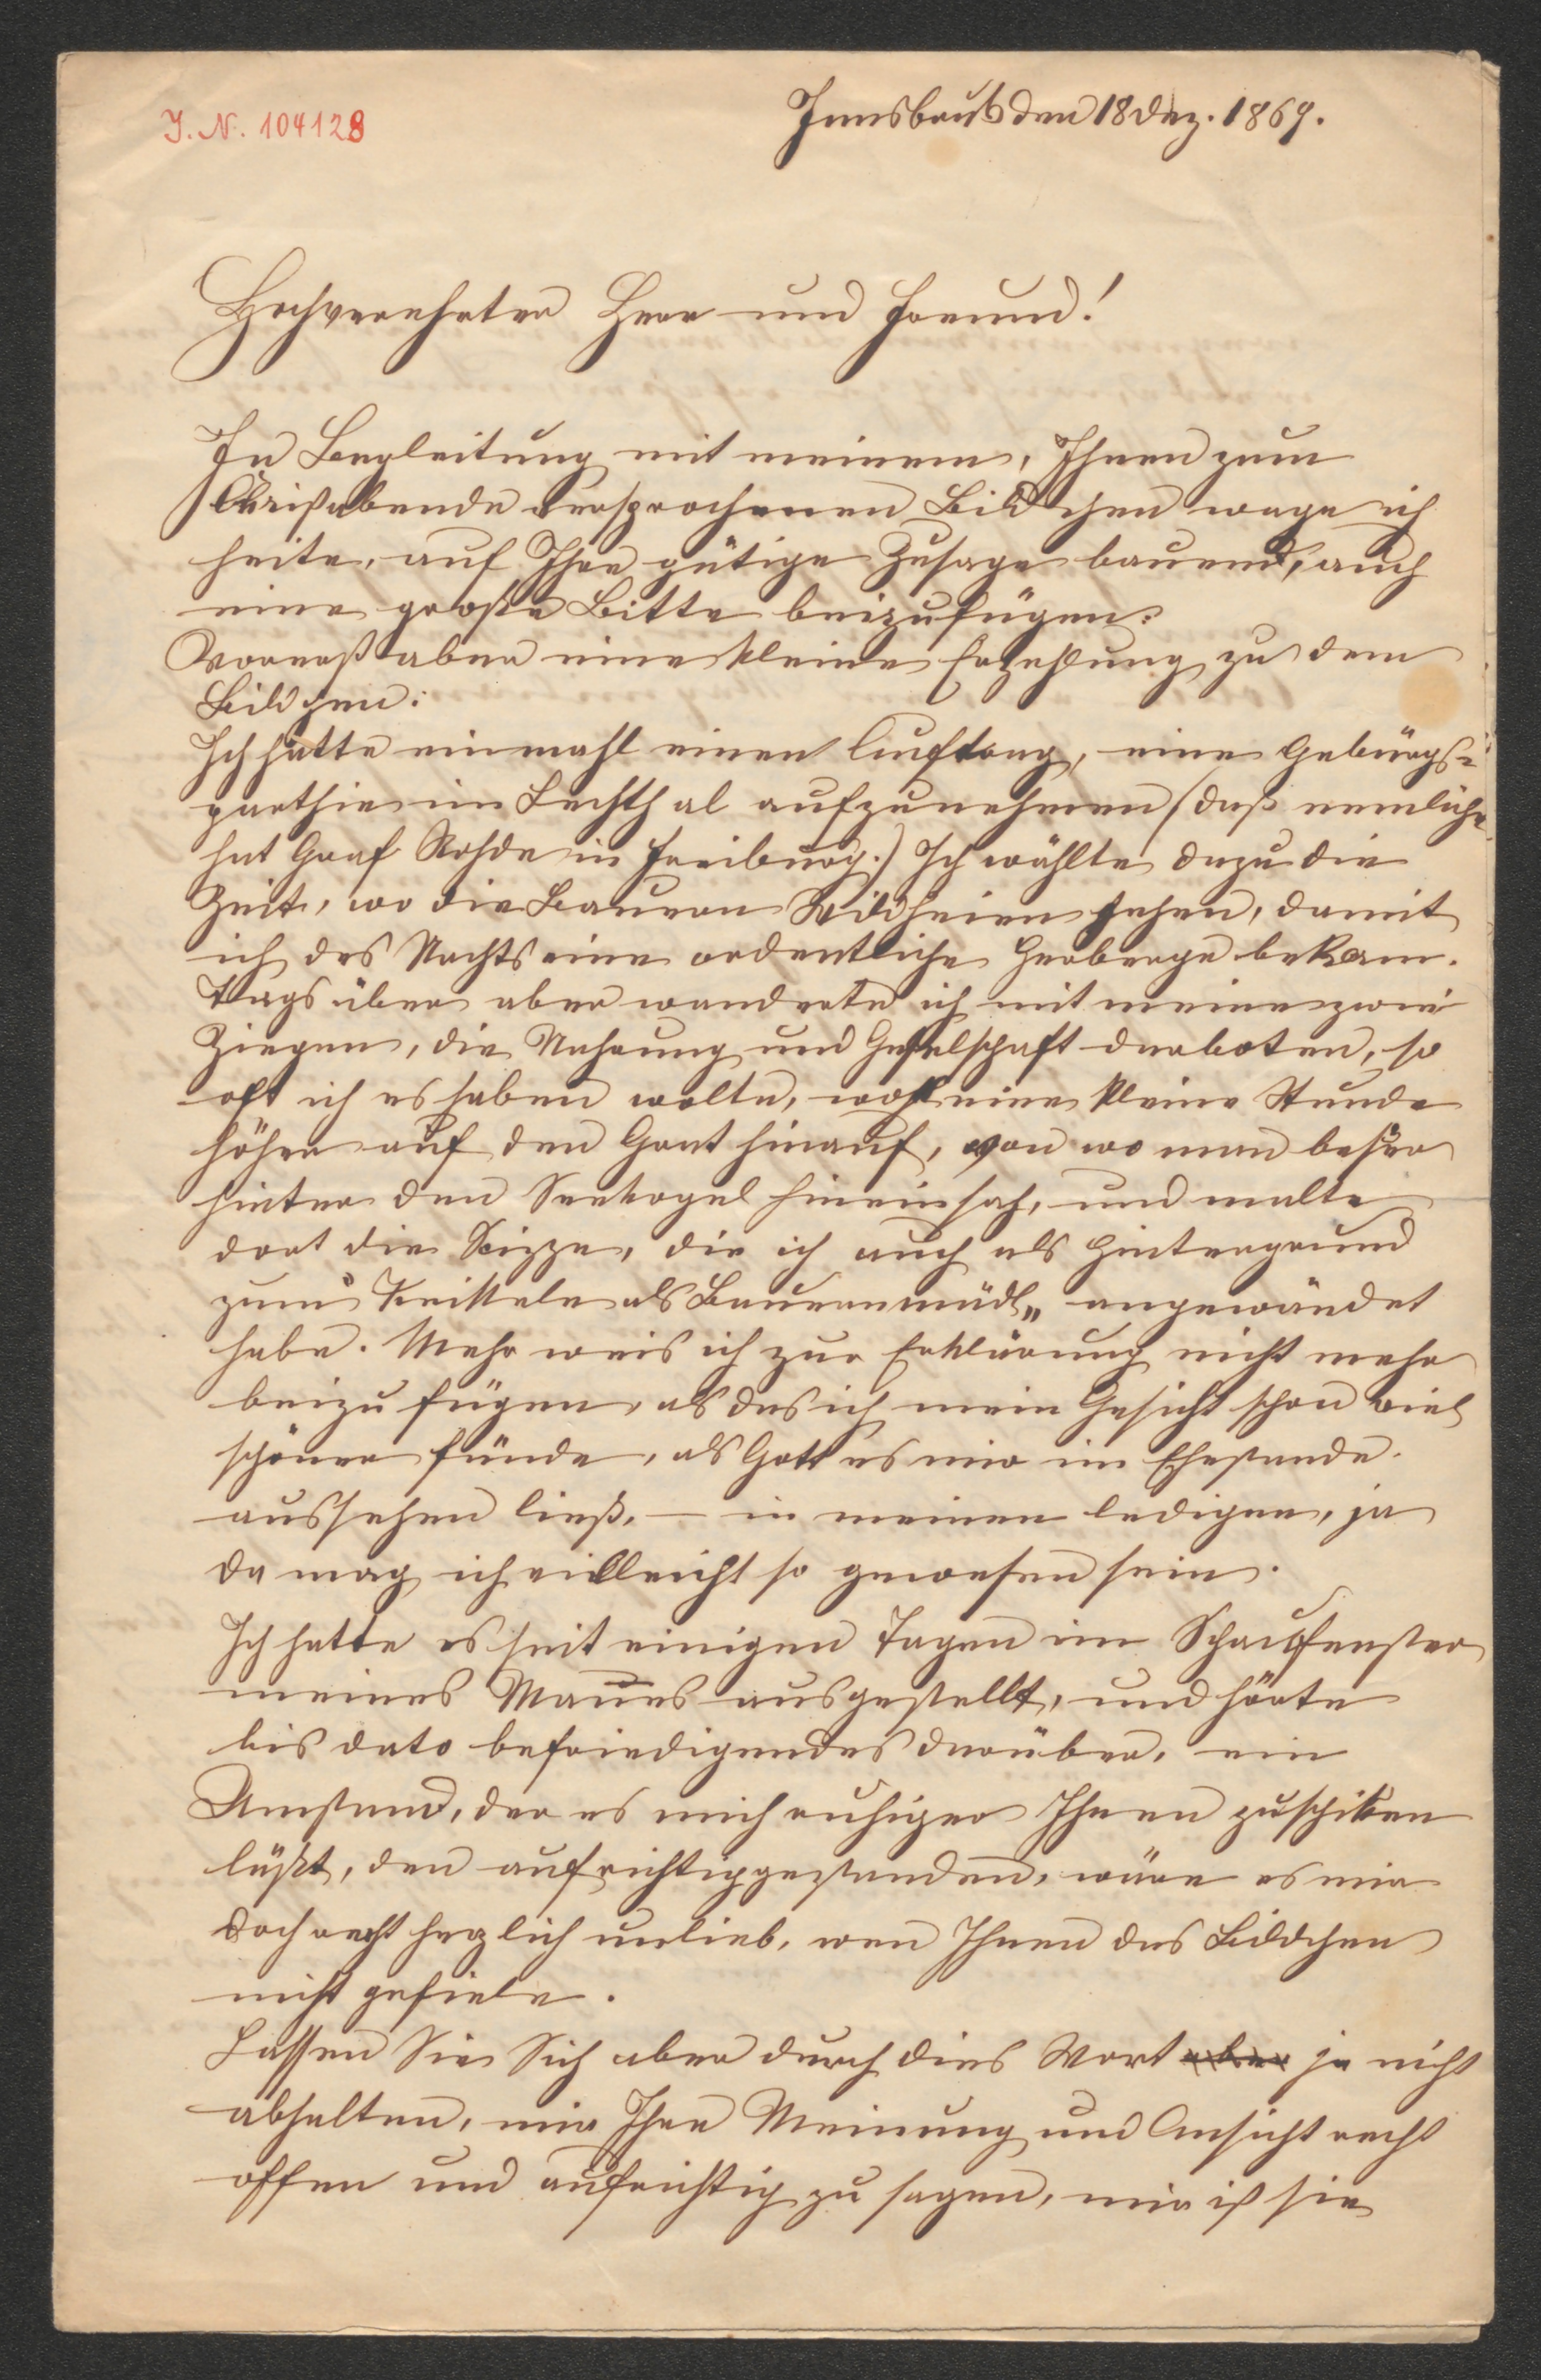 J. N. 104128
Innsbruk den 18 Dez. 1869.
Hochverehrter Herr und Freund!
In Begleitung mit meinem, Ihnen zum
Christabende versprochenen Bildchen wage ich
heite, auf Ihre gütige Zusage bauend, auch
eine große Bitte beizufügen.
Vorerst aber eine kleine Erzehlung zu dem
Bildchen:
Ich hatte einmahl einen Auftrag, eine Gebürgs-
parthie im Lechthal aufzunehmen (daß nemliche
hat Graf Rohde in Freiburg.) Ich wählte dazu die
Zeit, wo die Bauern Wildheien gehen, damit
ich des Nachts eine ordentliche Herberge bekam.
Tags über aber wanderte ich mit meine zwei
Ziegen, die Nahrung und Geselschaft darboten, so
oft ich es haben wolte, wohl eine kleine Stunde
höher auf den Grat hinauf, von wo man besser
hinter den Seekogel hineinsah, und malte
dort die Skizze, die ich auch als Hintergrund
zum als Bauernmädl„ angewändet
habe. Mehr weis ich zur Erklärung nicht mehr
beizufügen, als das ich mein Gesicht schon viel
schöner fände, als Gott es mir im Ehestande
aussehen ließ, — in meinen ledigen, ja
da mag ich vielleicht so gewesen sein.
Ich hatte es seit einigen Tagen im Schaufenster
meines Mannes ausgestellt, und hörte
bis dato befriedigendes darüber, ein
Umstand, der es mich ruhiger Ihnen zuschiken
läßt, den aufrichtig gestanden, wäre es mir
doch recht herzlich unlieb, wen Ihnen das Bildchen
nicht gefiele.
Lassen Sie Sich aber durch dies Wort aber ja nicht
abhalten, mir Ihre Meinung und Ansicht recht
offen und aufrichtig zu sagen, mir ist sie